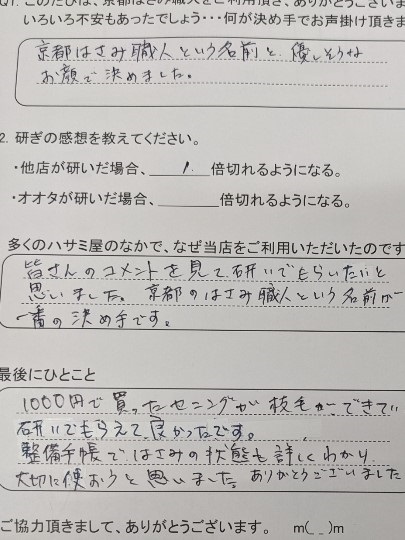 Q1. このたびは、京都はさみ職人をご利用頂き、ありがとうございま
いろいろ不安もあったでしょう・・・何が決め手でお声掛け頂きま
京都はさみ職人という名前と優しそうな
お顔で決めました。
2. 研ぎの感想を教えてください。
・他店が研いだ場合、 1. 倍切れるようになる。
・オオタが研いだ場合、 倍切れるようになる。
多くのハサミ屋のなかで、なぜ当店をご利用いただいたのです
皆さんのコメントを見て研いでもらいたいと
思いました。京都のはさみ職人という名前が
一番の決め手です。
最後にひとこと
1000円で買ったセニングが 枝毛ができてい
研いでもらえて良かったです。
整備手帳ではさみの状態も詳しくわかり
大切に使おうと思いました。ありがとうございました
ご協力頂きまして、ありがとうございます。 m(_)m